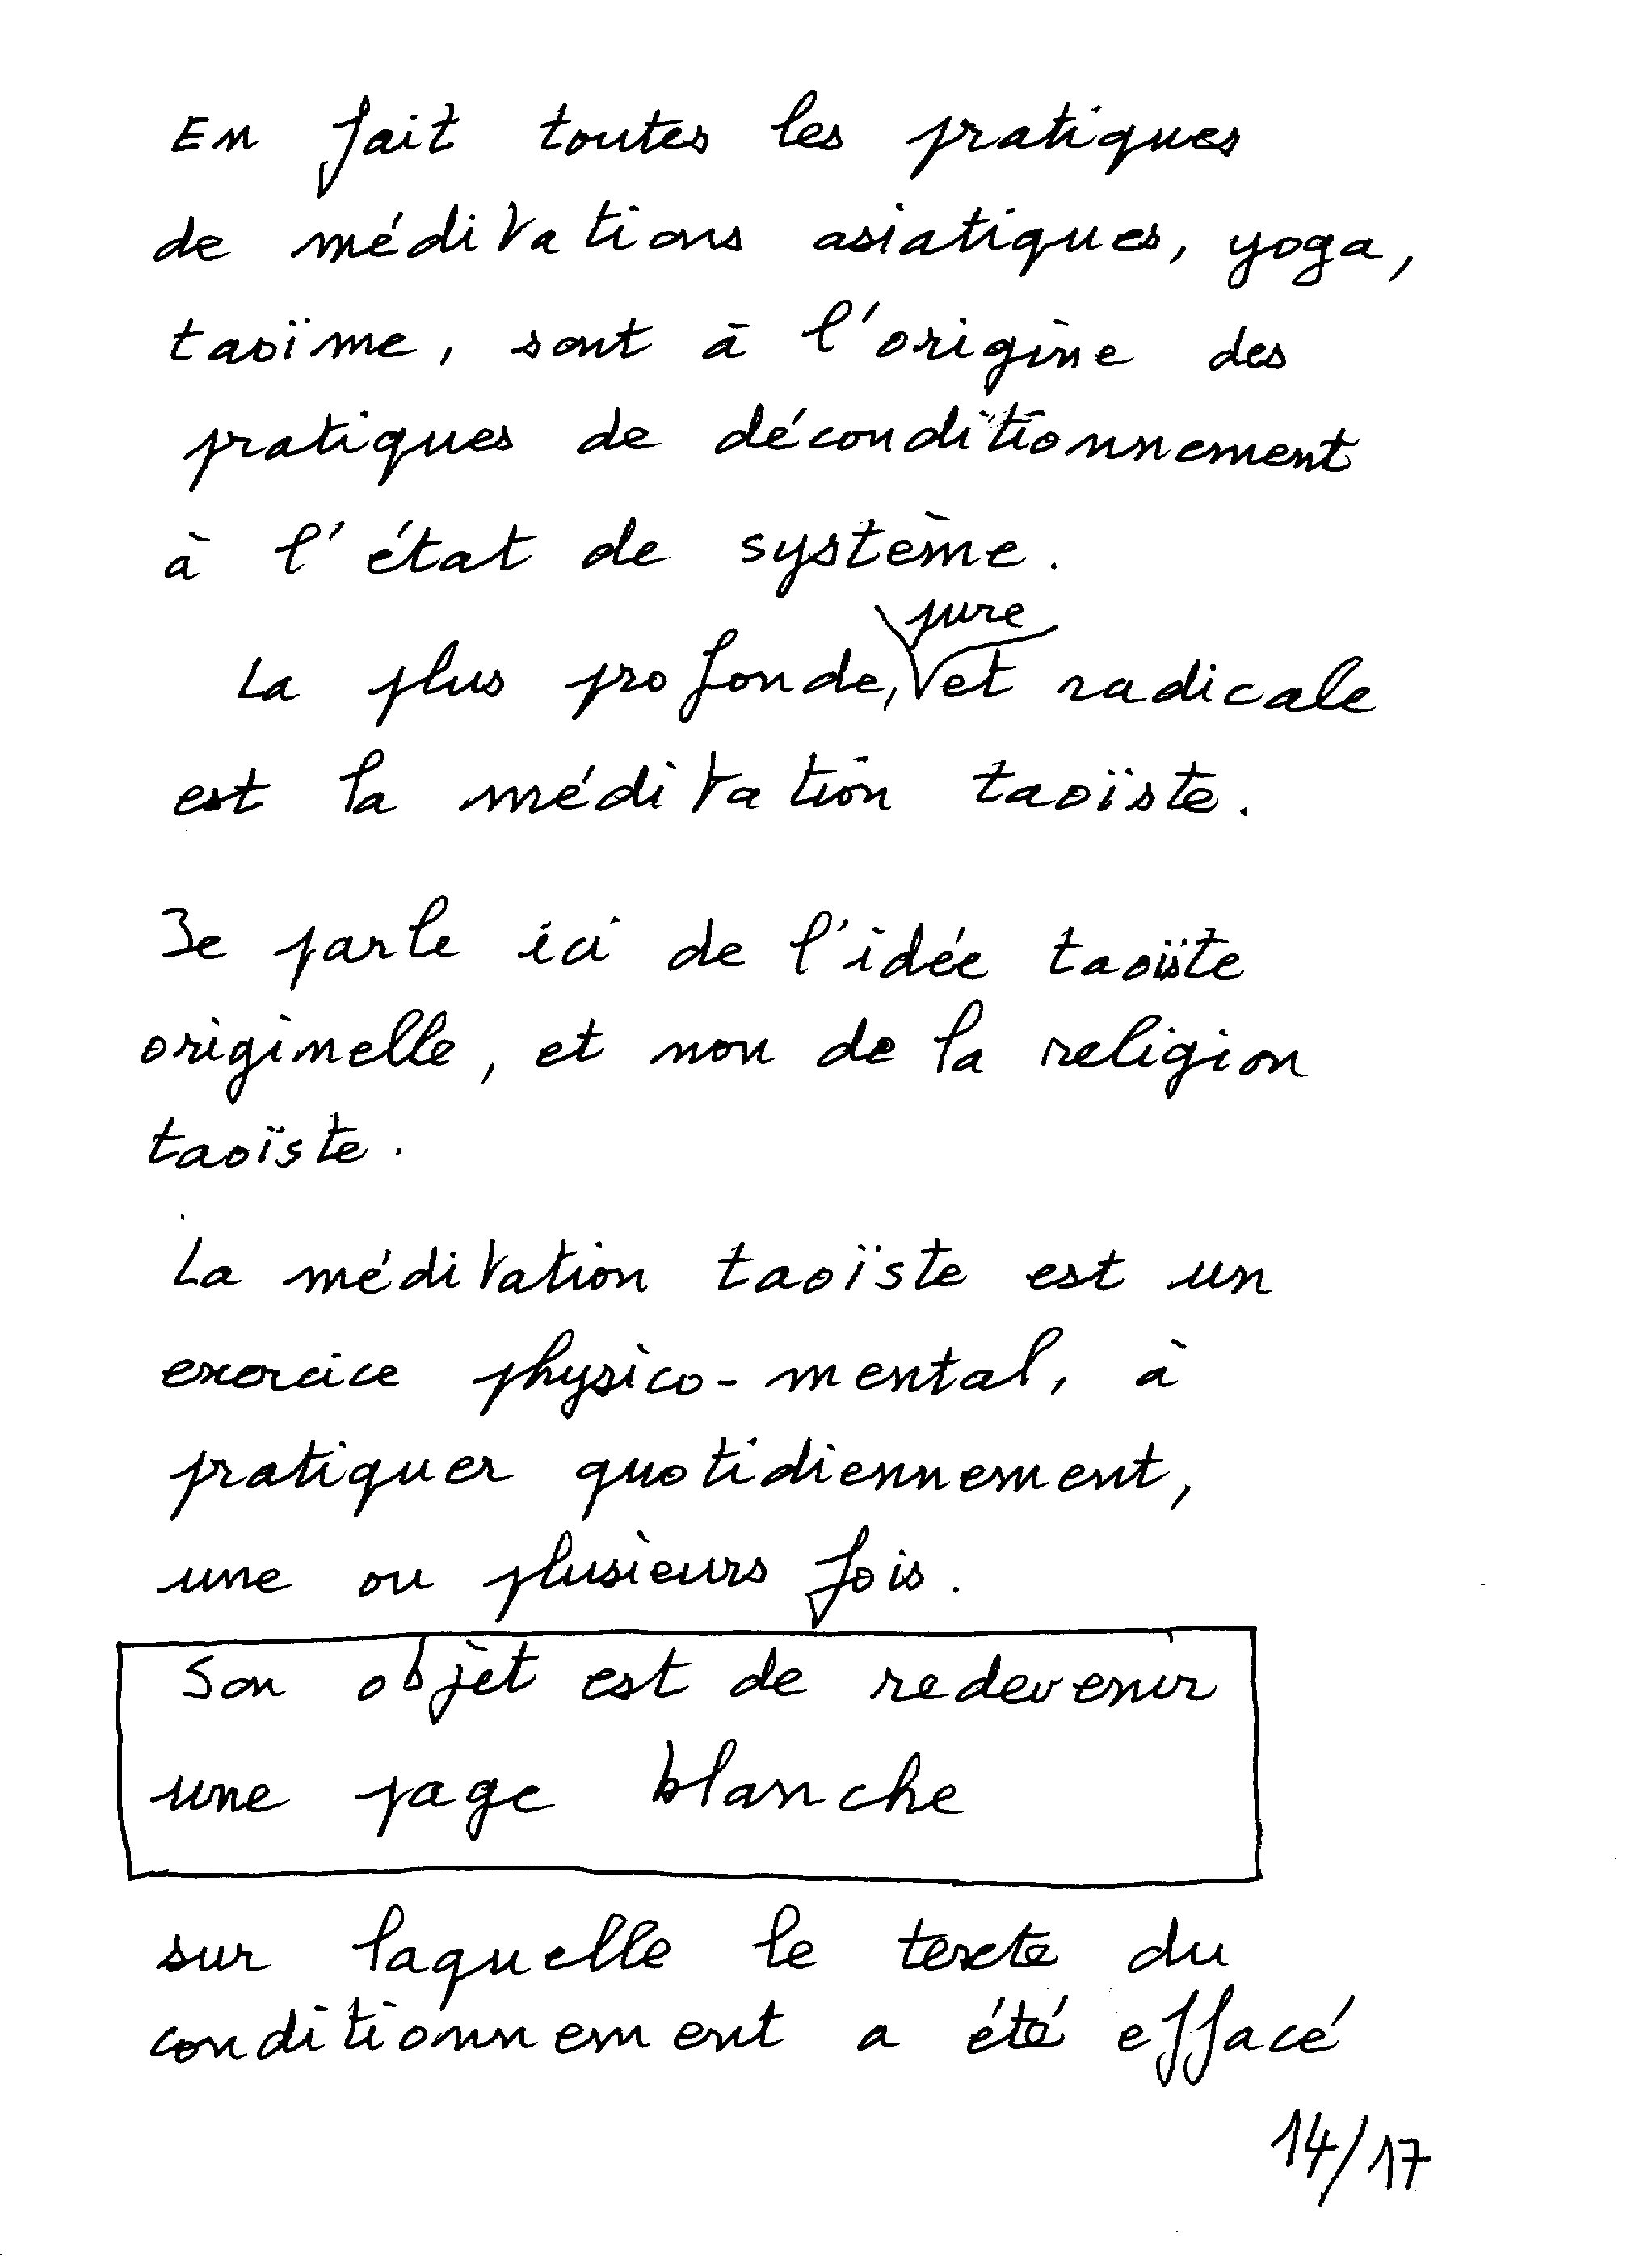 En fait toutes les pratiques
de méditations asiatiques, yoga,
taoïme, sont à l'origine des
pratiques de déconditionnement
à l'état de système.
pure
La plus profonde, et radicale
est la méditation taoïste.
Je parle ici de l'idée taoïste
originelle, et non de la religion
taoïste.
La méditation taoïste est un
exercice physico-mental, à
pratiquer quotidiennement,
une ou plusieurs fois.
Son objet est de redevenir
une page blanche
sur laquelle le texte du
conditionnement a été effacé
14/17